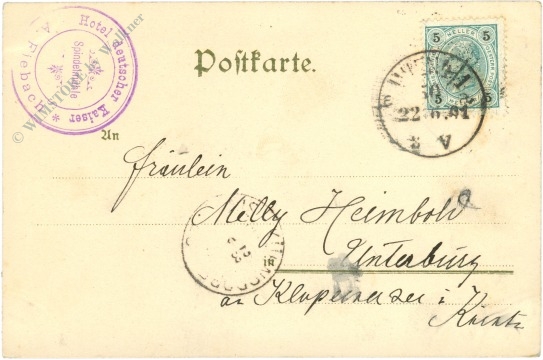 Hotel deutscher Kaiser
Spindelmühle
A. Fiebach
© WIMSTORE by Wallner
Postkarte.
5 HELLER 5
5 5
22 6 01
V
An
Fräulein
Melly Heimbold
in Unterburg
am Klopeinersee i.